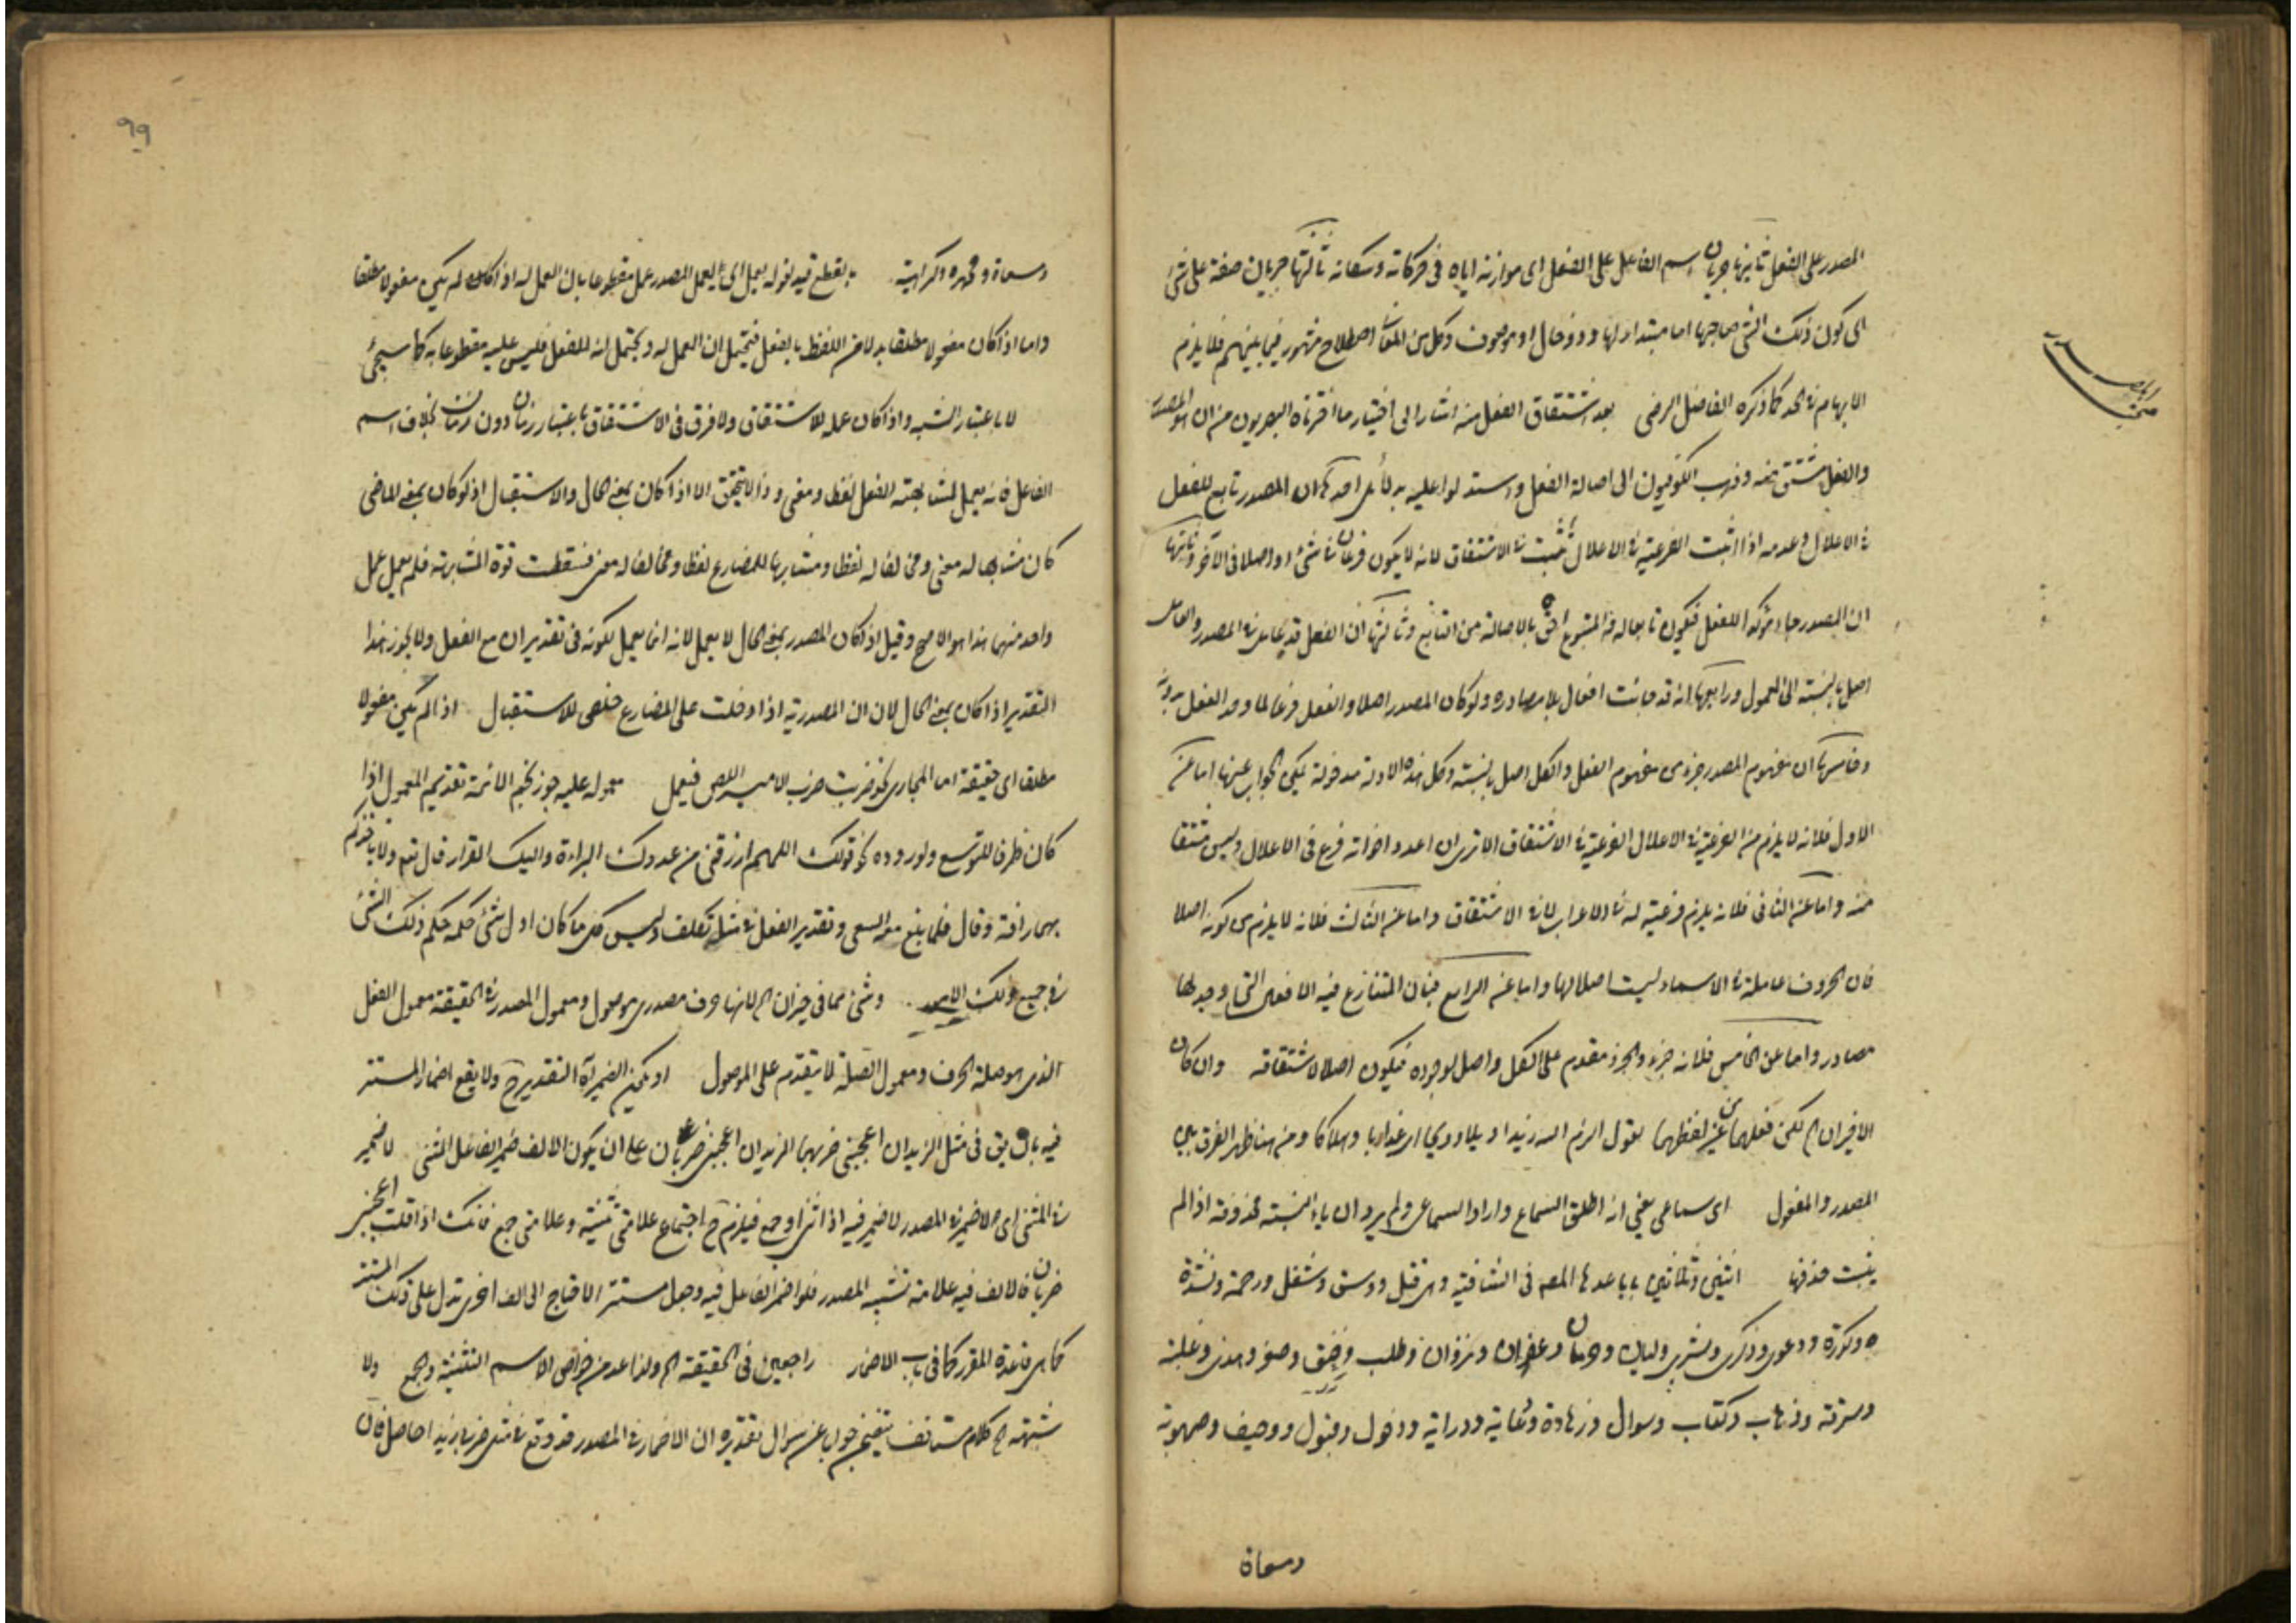 المصدر على الفعل ثانيها جريان اسم الفاعل على الفعل اى موازنة اياه فى حركاته وسكناته ثالثها جريان صفة على شئ
اى كون ذلك الشئ صاحبها اما مبتدا لها او ذو حال او موصوف وكل من المعان اصطلاح مشهور فيما بينهم فلا يلزم
الابهام فى الحد كما ذكره الفاضل الرضى بعد اشتقاق الفعل منه اشار الى اختيار ما اختاره البصريون من ان المصدر
والفعل مشتق منه وذهب الكوفيون الى اصالة الفعل واستدلوا عليه بدلائل احدها ان المصدر تابع للفعل
فى الاعلال وعدمه اذا ثبت الفرعية فى الاعلال ثبت فى الاشتقاق لانه لا يكون فرعا فى شئ واصلا فى الآخر وثانيها
ان المصدر جاء مؤكدا للفعل فيكون تابعا له والمتبوع احق بالاصالة من التابع وثالثها ان الفعل قد يعامل فى المصدر والعامل
اصل بالنسبة الى المعمول ورابعها انه قد جائت افعال بلا مصادر ولو كان المصدر اصلا والفعل فرعا لما وجد الفعل بدونه
وخامسها ان مفهوم المصدر جزء من مفهوم الفعل والكل اصل بالنسبة وكل هذه الادلة مدخولة يمكن الجواب عنها اما عن
الاول فلانه لا يلزم من الفرعية فى الاعلال الفرعية فى الاشتقاق الا ترى ان اعد واخواته فرع فى الاعلال وليس مشتقا
منه واما عن الثانى فلانه يلزم فرعيته له فى الاعراب لا فى الاشتقاق واما عن الثالث فلانه لا يلزم من كونه اصلا
فان الحروف عاملة فى الاسماء وليست اصلا لها واما عن الرابع فبان المتنازع فيه الافعال التى وجد لها
مصادر واما عن الخامس فلانه جزء والجزء مقدم على الكل واصل لوجوده فيكون اصلا لاشتقاقه وان كان
الاخيران لم يكن فعلهما من غير لفظهما بقول الزم الله زيدا ويلا وويحا اى عذابا وهلاكا ومن هنا ظهر الفرق بين
المصدر والمفعول اى سماعى يعنى انه اطلق السماع واراد السماعى ولم يرد ان ياء النسبة محذوفة اذ لم
يثبت حذفها اثنين وثلاثين بابا عدها المصه فى الشافية وهى قتل وفسق وشغل ورحمة ونشدة
وكدرة ودعوى وذكرى وبشرى وليان وحرمان وغفران ونزوان وطلب وخنق وصغر وهدى وغلبة
وسرقة وذهاب وكتاب وسوال وزهادة ودراية ودخول وقبول ووجيف وصهوبة
ومسعاة
ومسعاة ومحمدة وكراهية بالقطع قيد لقوله يعمل اى يعمل المصدر عمل مقطوعا بان العمل له اذا كان لم يكن مفعولا مطلقا
واما اذا كان مفعولا مطلقا بدلا من اللفظ بالفعل فيحتمل ان العمل له ويحتمل انه للفعل فليس عليه مقطوعا به كما سيجئ
لا باعتبار الشبه واذا كان عمله للاشتقاق ولا فرق فى الاشتقاق باعتبار زمان دون زمان بخلاف اسم
الفاعل فانه يعمل لمشابهته الفعل لفظا ومعنى وذا لا يتحقق الا اذا كان بمعنى الحال والاستقبال اذ لو كان بمعنى الماضى
كان مشابها له معنى ومخالفا له لفظا ومشابها للمضارع لفظا ومخالفا له معنى فسقطت قوة المشابهة فلم يعمل عمل
واحد منهما هذا هو الاصح وقيل اذا كان المصدر بمعنى الحال لا يعمل لانه انما يعمل لكونه فى تقدير ان مع الفعل ولا يجوز هذا
التقدير اذا كان بمعنى الحال لان ان المصدرية اذا دخلت على المضارع خلص للاستقبال اذا لم يكن مفعولا
مطلقا اى حقيقة اما المجازى نحو ضربت ضرب الامير اللص فيعمل معموله عليه جوز نجم الائمة تقديم المعمول اذا
كان ظرفا للتوسع ولوروده نحو قولك اللهم ارزقنى من عدوك البراءة واليك الفرار قال تع ولا تاخذكم
بهما رافة وقال فلما بلغ معه السعى وتقدير الفعل فى مثله تكلف وليس كل ما كان اول شئ حكمه حكم ذلك الشئ
فى جميع ذلك وشئ مما فى حيز ان لم لانها حرف مصدرى موصول ومعمول المصدر فى الحقيقة معمول الفعل
الذى هو صلة الحرف ومعمول الصلة لا يتقدم على الموصول او يكون الضمير آه التقدير ح ولا يقع اضمار المستتر
فيه بان يق فى مثل الزيدان اعجبنى ضربهما الزيدان اعجبنى ضربان على ان يكون الالف ضمير الفاعل المثنى لا ضمير
فى المثنى اى لا ضمير فى المصدر لا ضمير فيه اذا ثنى او جمع فيلزم ح اجتماع علامتى تثنية وعلامتى جمع فانك اذا قلت اعجبنى
ضربان فالالف فيه علامة تثنية المصدر فلو اضمر الفاعل فيه وجعل مستتر الاحتاج الى الف اخرى تدل على ذلك المستتر
كما هى قاعدة المقرر كما فى باب الاضمار راجعين فى الحقيقة الخ ولذا عد من خواص الاسم التثنية والجمع ولا
شبهة الخ كلام مستانف يتضمن جواب عن سوال تقديره ان الاضمار فى المصدر قد وقع فى مثل ضربا زيدا حاصل فان
٩٩